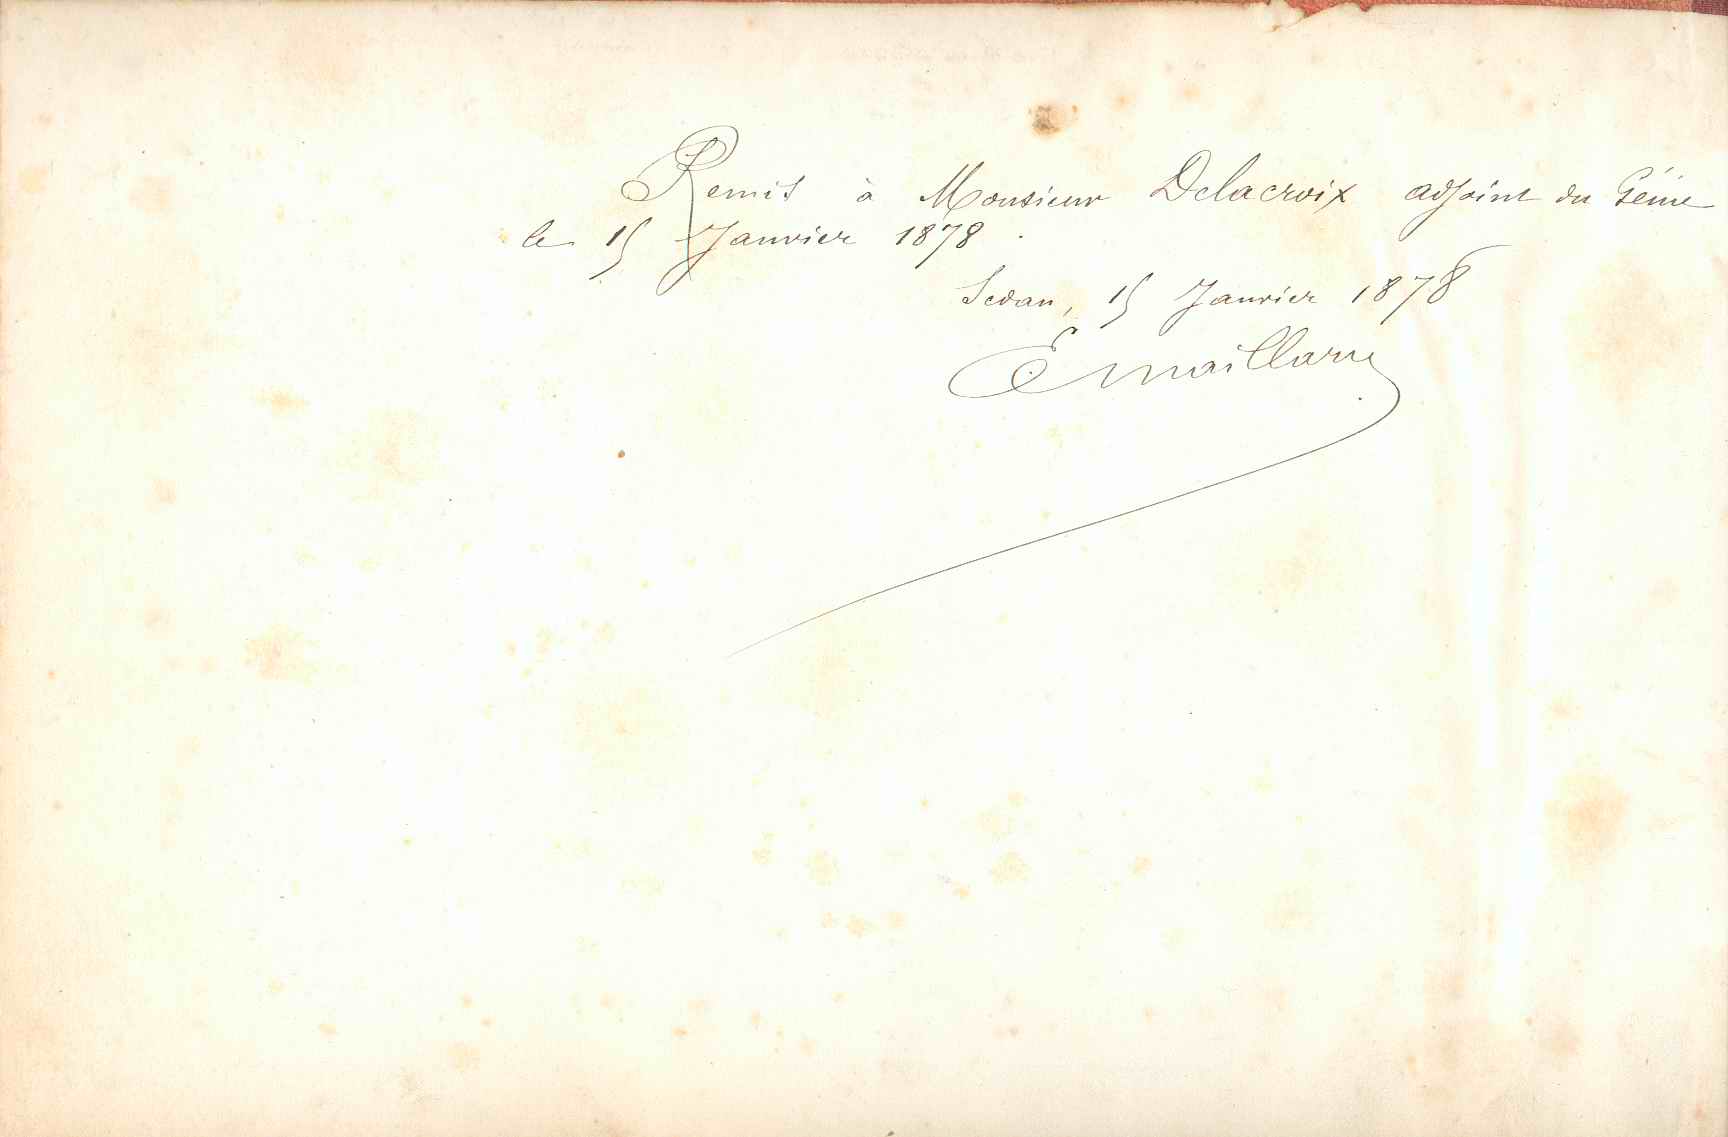 Remis à Monsieur Delacroix adjoint du Génie
le 15 Janvier 1878.
Sedan, 15 Janvier 1878
E Maillard